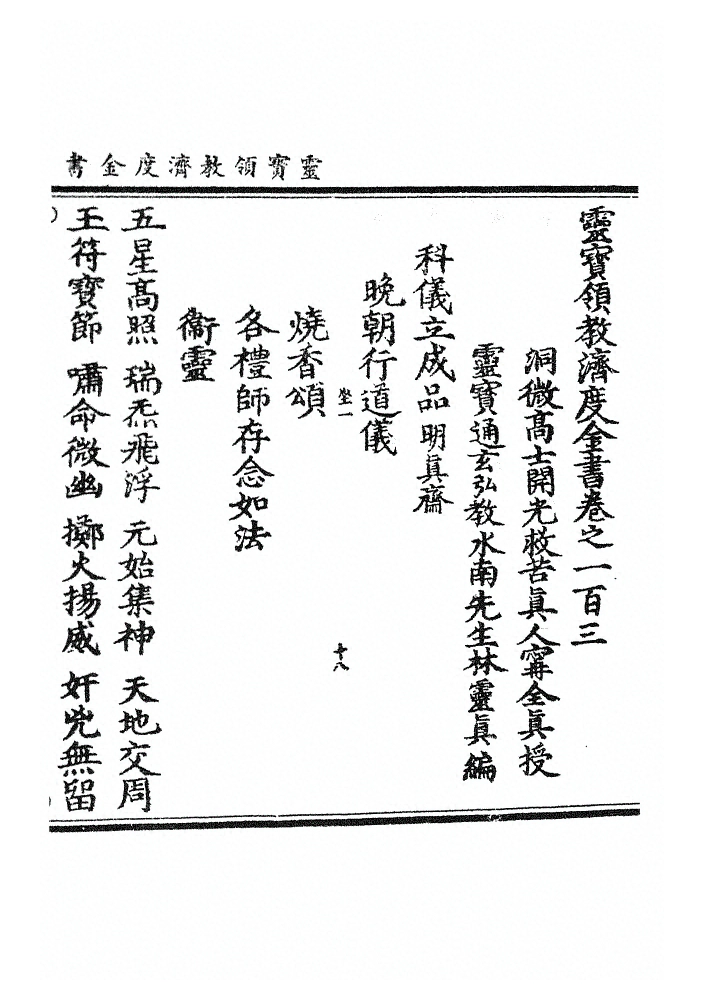 靈寶領教濟度金書
靈寶領教濟度金書卷之一百三
洞微高士開光救苦眞人甯全眞授
靈寶通玄弘教水南先生林靈眞編
科儀立成品明眞齋
晚朝行道儀
坐一
十八
燒香頌
各禮師存念如法
衞靈
五星高照 瑞炁飛浮 元始集神 天地交周
玉符寶節 嘯命微幽 擲火揚威 奸兇無留